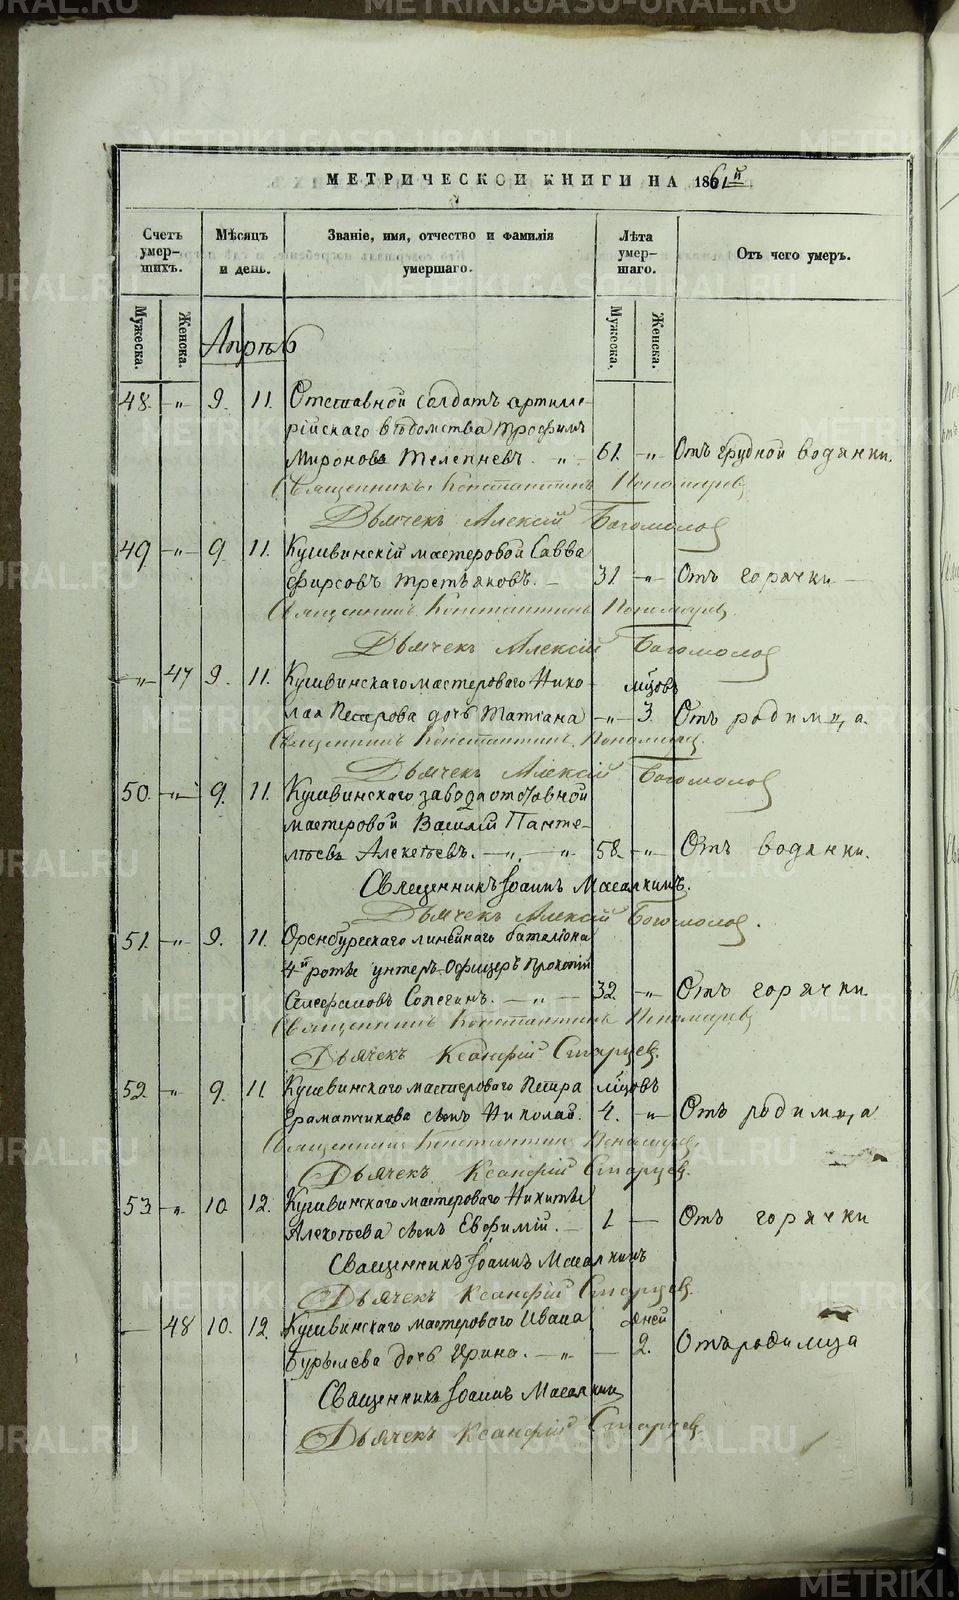 МЕТРИЧЕСКОЙ КНИГИ НА 1861й
Счетъ умер-шихъ.
Мѣсяцъ и день.
Званіе, имя, отчество и фамилія умершаго.
Лѣта умер-шаго.
Отъ чего умеръ.
Мужеска.
Женска.
Мужеска.
Женска.
Апрѣль
48. „ 9. 11. Отставной солдатъ артилле-
рійскаго вѣдомства Трофимъ
Мироновъ Телепневъ. „ 61. „ Отъ грудной водянки.
Священникъ Константинъ Пономаревъ
Дьячекъ Алексій Богомолов
49 „ 9. 11. Кушвинскій мастеровой Савва
Фирсовъ Третьяковъ. 31. „ Отъ горячки
Священникъ Константинъ Пономаревъ.
Дьячекъ Алексій Богомолов
„ 47 9. 11. Кушвинскаго мастероваго Нико- мѣцовъ
лая Петрова дочь Татіана „ 3. Отъ родимца.
Священникъ Константинъ Пономарев.
Дьячекъ Алексій Богомолов
50. „ 9. 11. Кушвинскаго завода отставной
мастеровой Василій Панте-
лѣевъ Алексѣевъ. „ „ 58. „ Отъ водянки.
Священникъ Іоаннъ Масалкинъ.
Дьячекъ Алексій Богомолов.
51. „ 9. 11. Оренбургскаго линейнаго баталіона
4й роты унтеръ-Офицеръ Прокопій
„ 32. „ Отъ горячки
Священникъ Константинъ Пономаревъ
Дьячекъ Ксанфій Старцев.
52. „ 9. 11. Кушвинскаго мастероваго Петра мѣцовъ
Граматчикова сынъ Николай. 4. „ Отъ родимца
Священникъ Константинъ Пономарев,
Дьячекъ Ксанфій Старцев.
53 „ 10 12. Кушвинскаго мастероваго Никиты
Алексѣева сынъ Евфимій. 1 Отъ горячки
Священникъ Іоаннъ Масалкинъ
Дьячекъ Ксанфій Старцев.
48 10. 12. Кушвинскаго мастероваго Ивана дней
Бурылева дочь Ирина. „ 2. Отъ родимца
Священникъ Іоаннъ Масалкин
Дьячекъ Ксанфій Старцев
METRIKI.GASO-URAL.RU